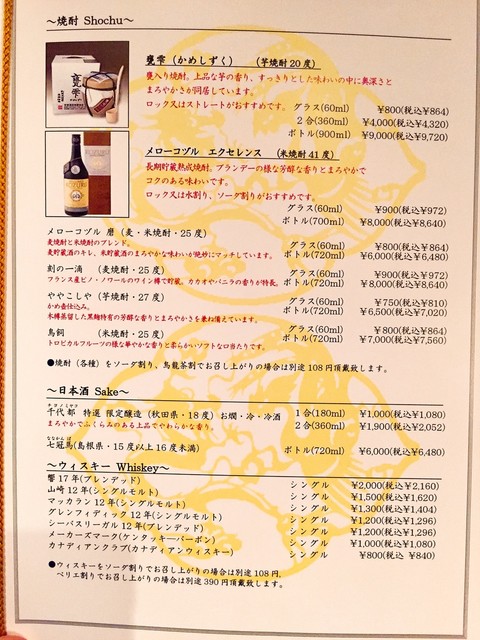 ～焼酎 Shochu～
甕雫（かめしずく） （芋焼酎20度）
甕入り焼酎。上品な芋の香り、すっきりとした味わいの中に奥深さと
まろやかさが同居しています。
ロック又はストレートがおすすめです。 グラス(60ml) ¥800(税込¥864)
2合(360ml) ¥4,000(税込¥4,320)
ボトル(900ml) ¥9,000(税込¥9,720)
メローコヅル エクセレンス （米焼酎41度）
長期貯蔵熟成焼酎。ブランデーの様な芳醇な香りとまろやかで
コクのある味わいです。
ロック又は水割り、ソーダ割りがおすすめです。
グラス(60ml) ¥900(税込¥972)
ボトル(700ml) ¥8,000(税込¥8,640)
メローコヅル 磨（麦・米焼酎・25度）
麦焼酎と米焼酎のブレンド。 グラス(60ml) ¥800(税込¥864)
麦貯蔵酒のキレ、米貯蔵酒のまろやかな味わいが絶妙にマッチしています。 ボトル(720ml) ¥6,000(税込¥6,480)
刻の一滴 （麦焼酎・25度） グラス(60ml) ¥900(税込¥972)
フランス産ピノ・ノワールのワイン樽で貯蔵。カカオやバニラの香りが特長。 ボトル(720ml) ¥8,000(税込¥8,640)
ややこしや（芋焼酎・27度） グラス(60ml) ¥750(税込¥810)
かめ壺仕込み。 ボトル(720ml) ¥6,500(税込¥7,020)
木樽蒸留した黒麹特有の芳醇な香りとまろやかさを兼ね備えています。
鳥飼 （米焼酎・25度） グラス(60ml) ¥800(税込¥864)
トロピカルフルーツの様な華やかな香りと柔らかいソフトな口当たりです。 ボトル(720ml) ¥7,000(税込¥7,560)
●焼酎（各種）をソーダ割り、烏龍茶割でお召し上がりの場合は別途108円頂戴致します。
～日本酒 Sake～
千代都 特選 限定醸造（秋田県・18度）お燗・冷・冷酒 1合(180ml) ¥1,000(税込¥1,080)
まろやかでふくらみのある上品でやわらかな香り。 2合(360ml) ¥1,900(税込¥2,052)
ななかんば
七冠馬(島根県・15度以上16度未満) ボトル(720ml) ¥6,000(税込¥6,480)
～ウィスキー Whiskey～
響17年(ブレンデッド) シングル ¥2,000(税込¥2,160)
山崎12年(シングルモルト) シングル ¥1,500(税込¥1,620)
マッカラン12年(シングルモルト) シングル ¥1,300(税込¥1,404)
グレンフィディック12年(シングルモルト) シングル ¥1,200(税込¥1,296)
シーバスリーガル12年(ブレンデッド) シングル ¥1,200(税込¥1,296)
メーカーズマーク(ケンタッキーバーボン) シングル ¥1,000(税込¥1,080)
カナディアンクラブ(カナディアンウィスキー) シングル ¥800(税込 ¥840)
●ウィスキーをソーダ割りでお召し上がりの場合は別途108円、
ペリエ割りでお召し上がりの場合は別途390円頂戴致します。